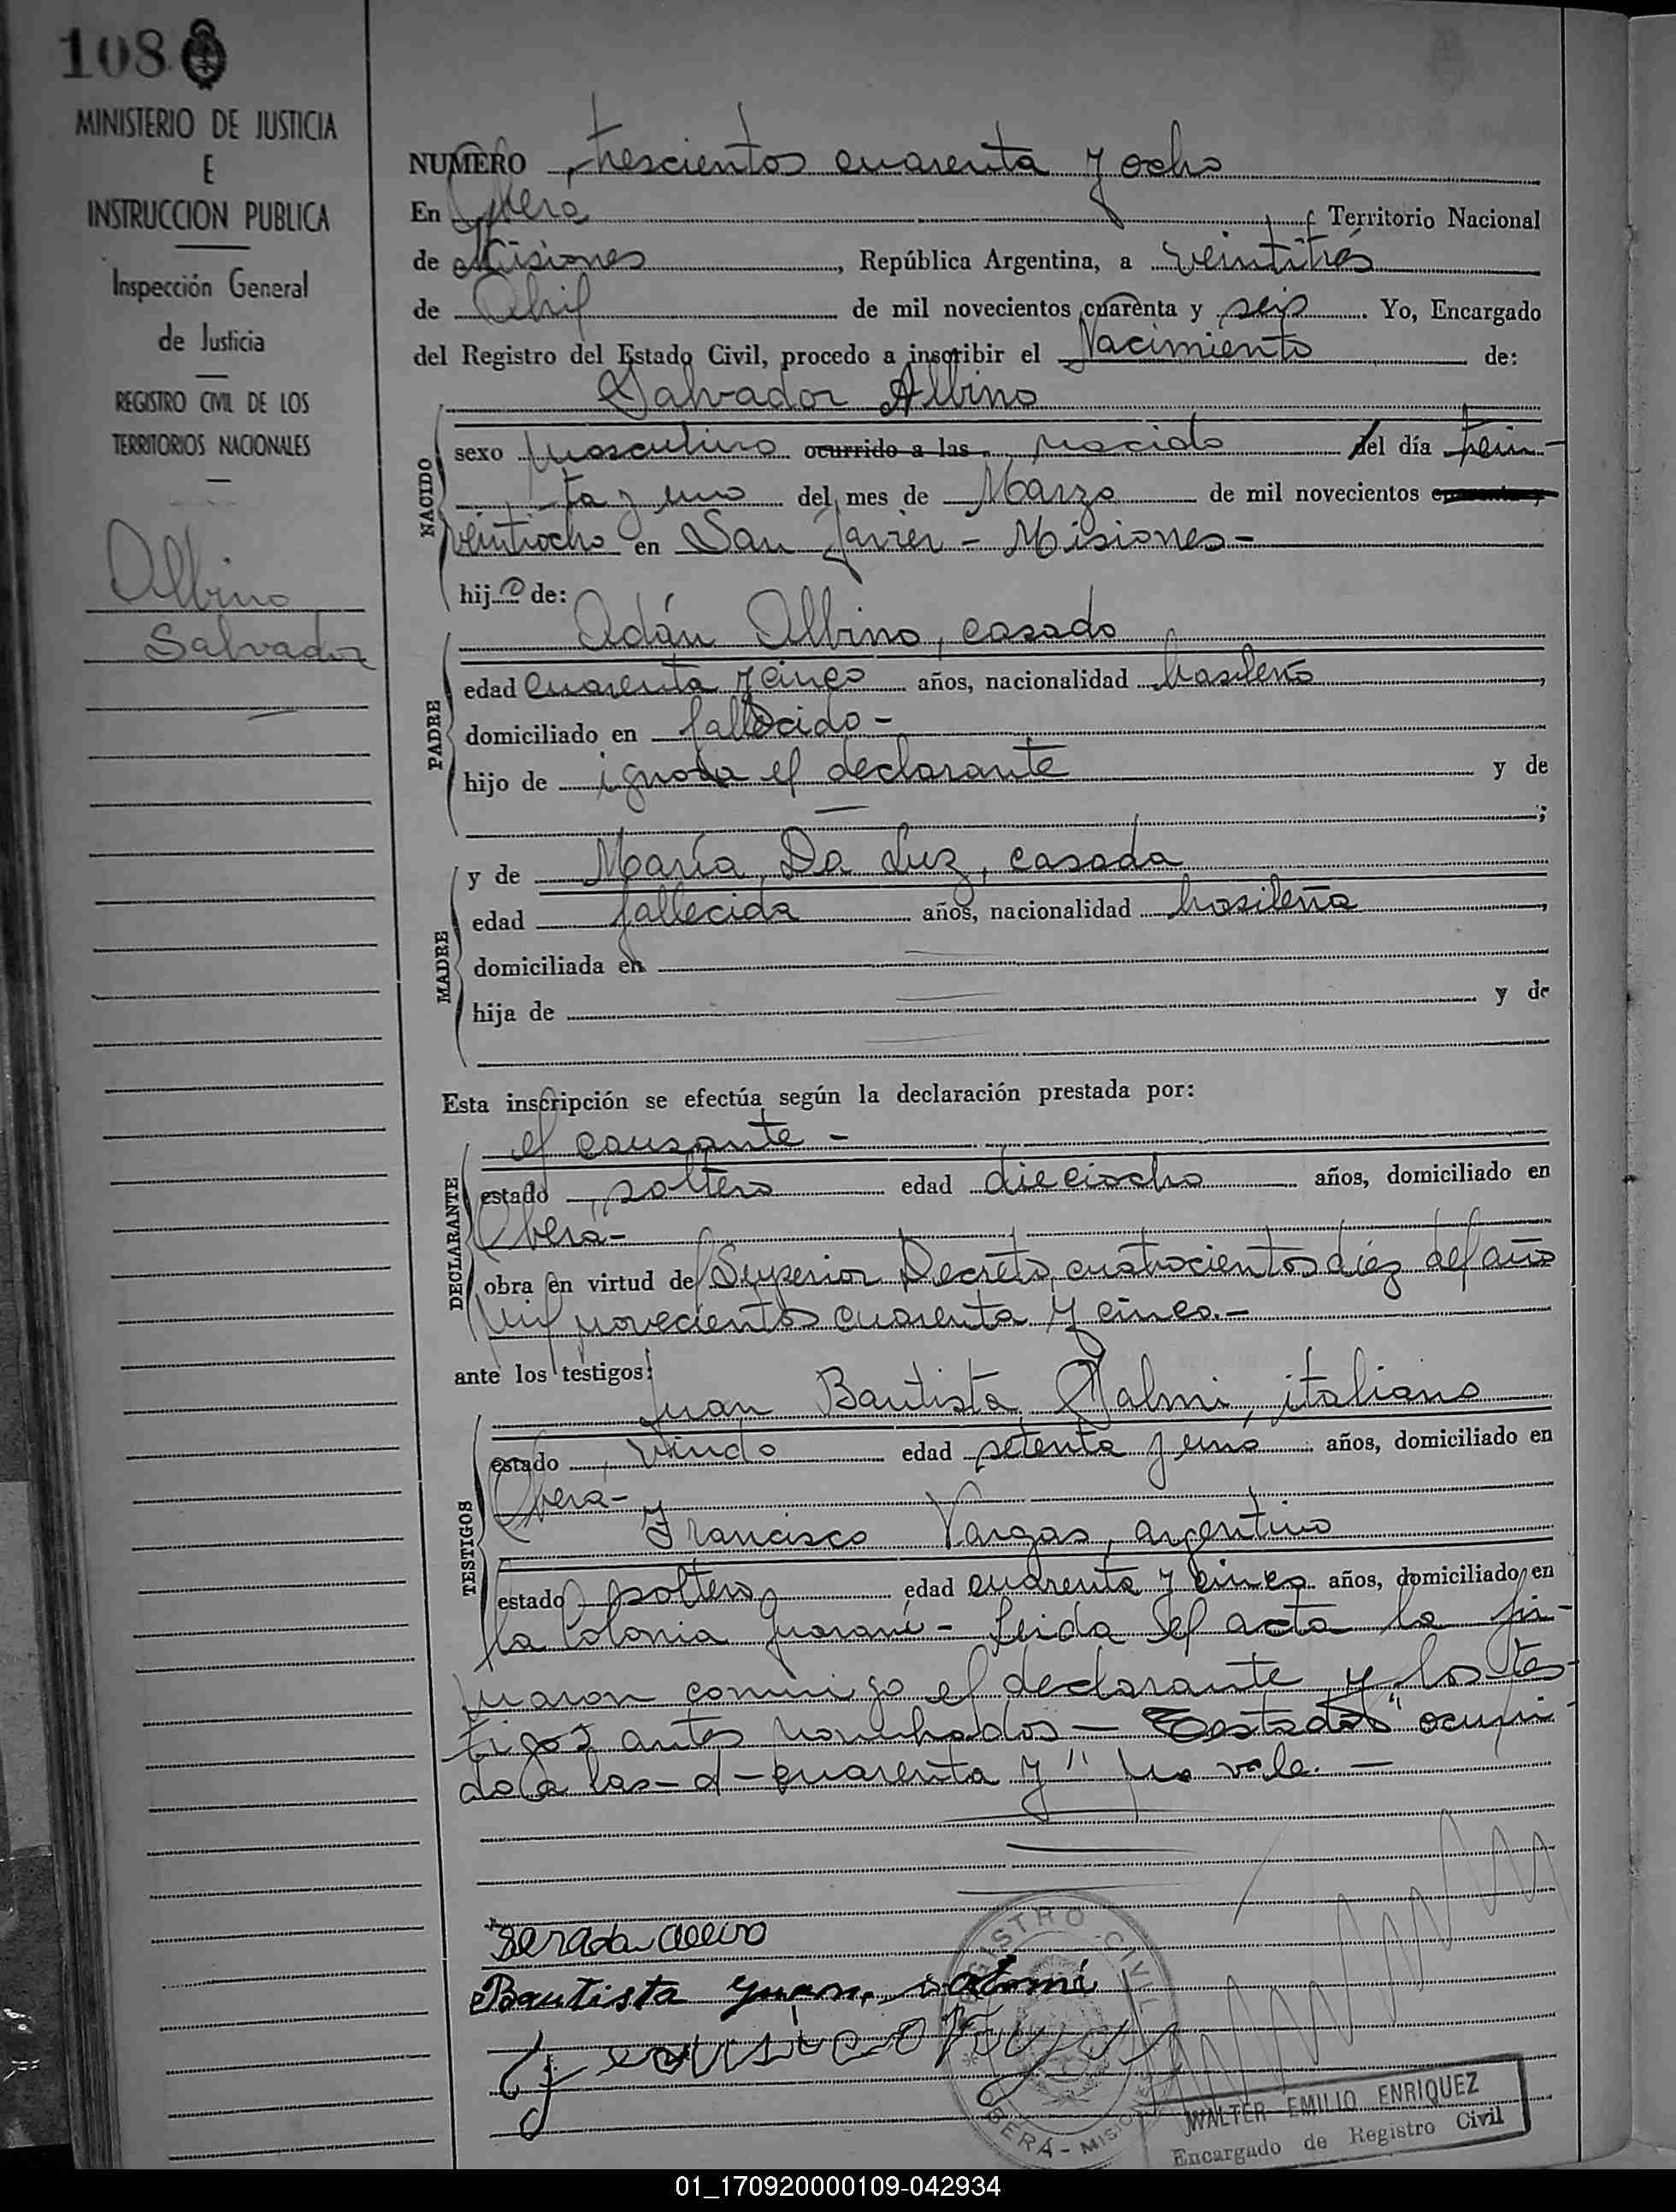 108
MINISTERIO DE JUSTICIA
E
INSTRUCCION PUBLICA
Inspección General
de Justicia
REGISTRO CIVIL DE LOS
TERRITORIOS NACIONALES
Albino
Salvador
NUMERO trescientos cuarenta y ocho
En Obera Territorio Nacional
de Misiones, República Argentina, a veintitrés
de Abril de mil novecientos cuarenta y seis. Yo, Encargado
del Registro del Estado Civil, procedo a inscribir el Nacimiento de:
Salvador Albino
NACIDO
sexo masculino ocurrido a las nacido del día trein-
ta y uno del mes de Marzo de mil novecientos cuarenta y
veintiocho en San Javier - Misiones -
hijo de:
PADRE
Adán Albino, casado
edad cuarenta y cinco años, nacionalidad brasileño,
domiciliado en fallecido -
hijo de ignora el declarante y de
;
MADRE
y de María Da Luz, casada
edad fallecida años, nacionalidad brasileña,
domiciliada en
hija de y de
Esta inscripción se efectúa según la declaración prestada por:
DECLARANTE
el causante -
estado soltero edad dieciocho años, domiciliado en
Oberá -
obra en virtud del Superior Decreto cuatrocientos diez del año
Mil novecientos cuarenta y cinco. -
ante los testigos:
TESTIGOS
Juan Bautista Salmi, italiano
estado viudo edad setenta y uno años, domiciliado en
Obera -
Francisco Vargas, argentino
estado soltero edad cuarenta y cinco años, domiciliado en
la Colonia Guaraní - Leida el acta la fir-
maron conmigo el declarante y los tes-
tigos antes nombrados - Testado "ocurri-
do a las - d - cuarenta y" no vale. -
Bautista Juan
REGISTRO CIVIL
OBERÁ - MISIONES
WALTER EMILIO ENRIQUEZ
Encargado de Registro Civil
01_170920000109-042934